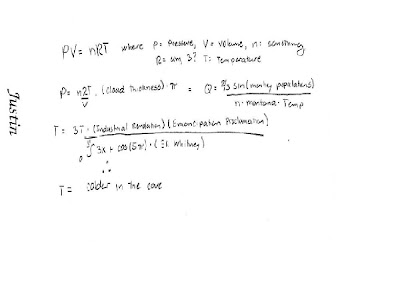 PV = nRT where P= Pressure, V= Volume, n: something
R= um, 3? T: Temperature
P= nRT/V · (Cloud Thickness) · π = Q= 2/3 sin(monkey populations) / n · montana · Temp
T = 3T · (Industrial Revolution) (Emancipation Proclamation) / ∫ 3x + cos(5π) · (Eli Whitney)
∴
T = colder in the cave
Justin